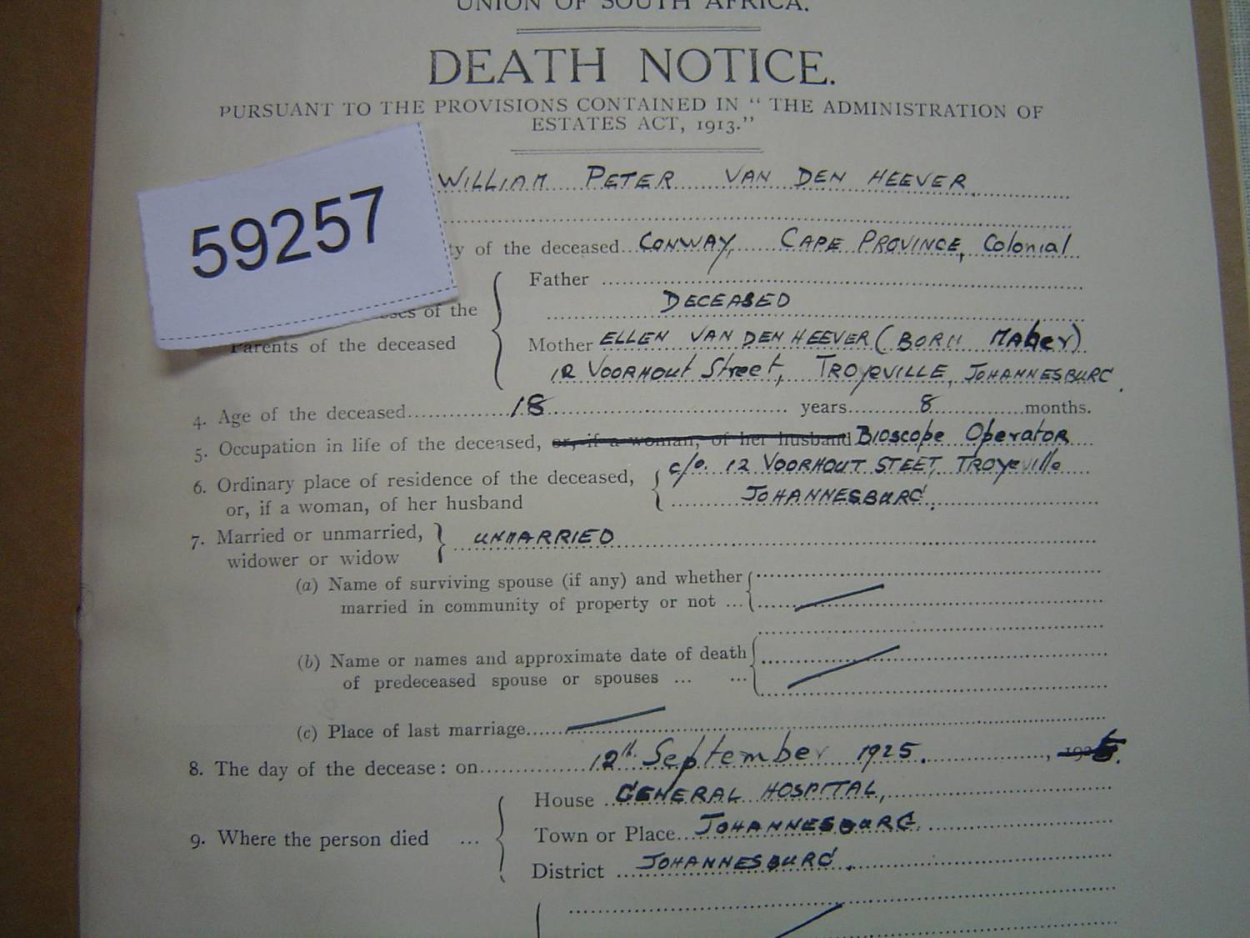 UNION OF SOUTH AFRICA.
DEATH NOTICE.
PURSUANT TO THE PROVISIONS CONTAINED IN "THE ADMINISTRATION OF
ESTATES ACT, 1913."
59257
WILLIAM PETER VAN DEN HEEVER
ty of the deceased CONWAY, CAPE PROVINCE, Colonial
Father
DECEASED
ses of the
Parents of the deceased
Mother ELLEN VAN DEN HEEVER (BORN Maber)
12 VOORHOUT Street, TROYEVILLE, JOHANNESBURG.
4. Age of the deceased 18 years 8 months.
5. Occupation in life of the deceased, or, if a woman, of her husband Bioscope Operator
6. Ordinary place of residence of the deceased, or, if a woman, of her husband
c/o. 12 VOORHOUT STEET, TROYEVille
JOHANNESBURG.
7. Married or unmarried, widower or widow
UNMARRIED
(a) Name of surviving spouse (if any) and whether
married in community of property or not ...
(b) Name or names and approximate date of death
of predeceased spouse or spouses ... ...
(c) Place of last marriage
8. The day of the decease: on 12th September 1925. , 192
9. Where the person died ...
House GENERAL HOSPITAL,
Town or Place JOHANNESBURG.
District JOHANNESBURG.